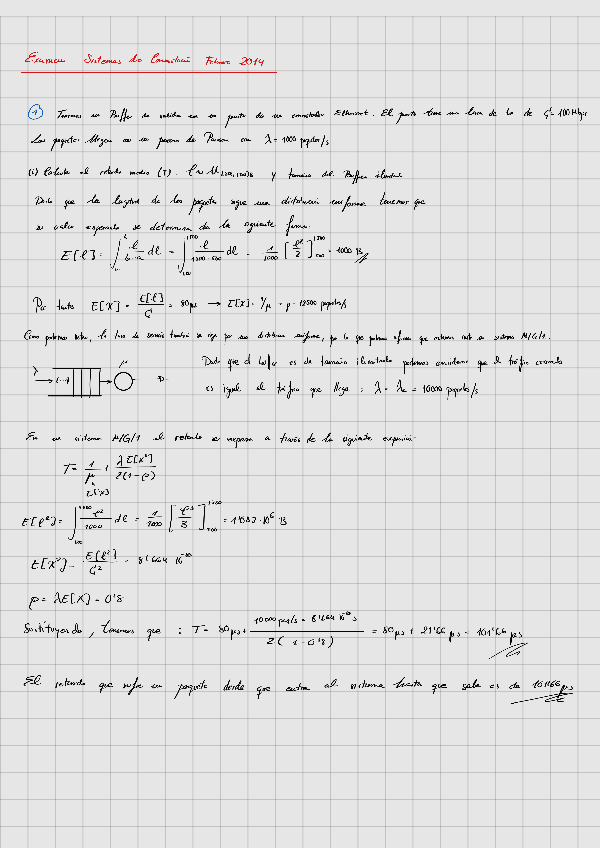 Examen Sistemas de Conmutación Febrero 2014
① Tenemos un Buffer de salida en un puerto de un conmutador Ethernet. El puerto tiene un línea de de C = 100 Mbps
Los paquetes llegan en un proceso de Poisson con λ = 1000 paquetes/s
(i) Calcula el retardo medio (T). l ~ U y tamaño del Buffer ilimitado
Dado que la longitud de los paquetes sigue una distribución uniforme tenemos que
su valor esperado se determina de la siguiente forma:
E[l] = ∫ l/(b-a) dl = ∫ l/(1500-500) dl = 1/1000 [l²/2] = 1000 B
Por tanto E[X] = E[l]/C = 80µs → E[X] = 1/µ → µ = 12500 paquetes/s
Como podemos notar, la tasa de servicio también se rige por una distribución uniforme, por lo que podemos afirmar que estamos ante un sistema M/G/1.
λ µ
Dado que el buffer es de tamaño ilimitado podemos considerar que el tráfico cursado
es igual al tráfico que llega : λ = λc = 10000 paquetes/s
En un sistema M/G/1 el retardo se expresa a través de la siguiente expresión:
T = 1/µ + λE[X²]/2(1-ρ)
E[X]
E[l²] = ∫ l²/1000 dl = 1/1000 [l³/3] = 1'083·10⁶ B
E[X²] = E[l²]/C² = 8'664·10⁻⁹
ρ = λE[X] = 0'8
Sustituyendo, tenemos que : T = 80µs + 10000 paq/s · 8'664·10⁻⁹ s / 2(1-0'8) = 80µs + 21'66 µs = 101'66 µs
El retardo que sufre un paquete desde que entra al sistema hasta que sale es de 101'66 µs